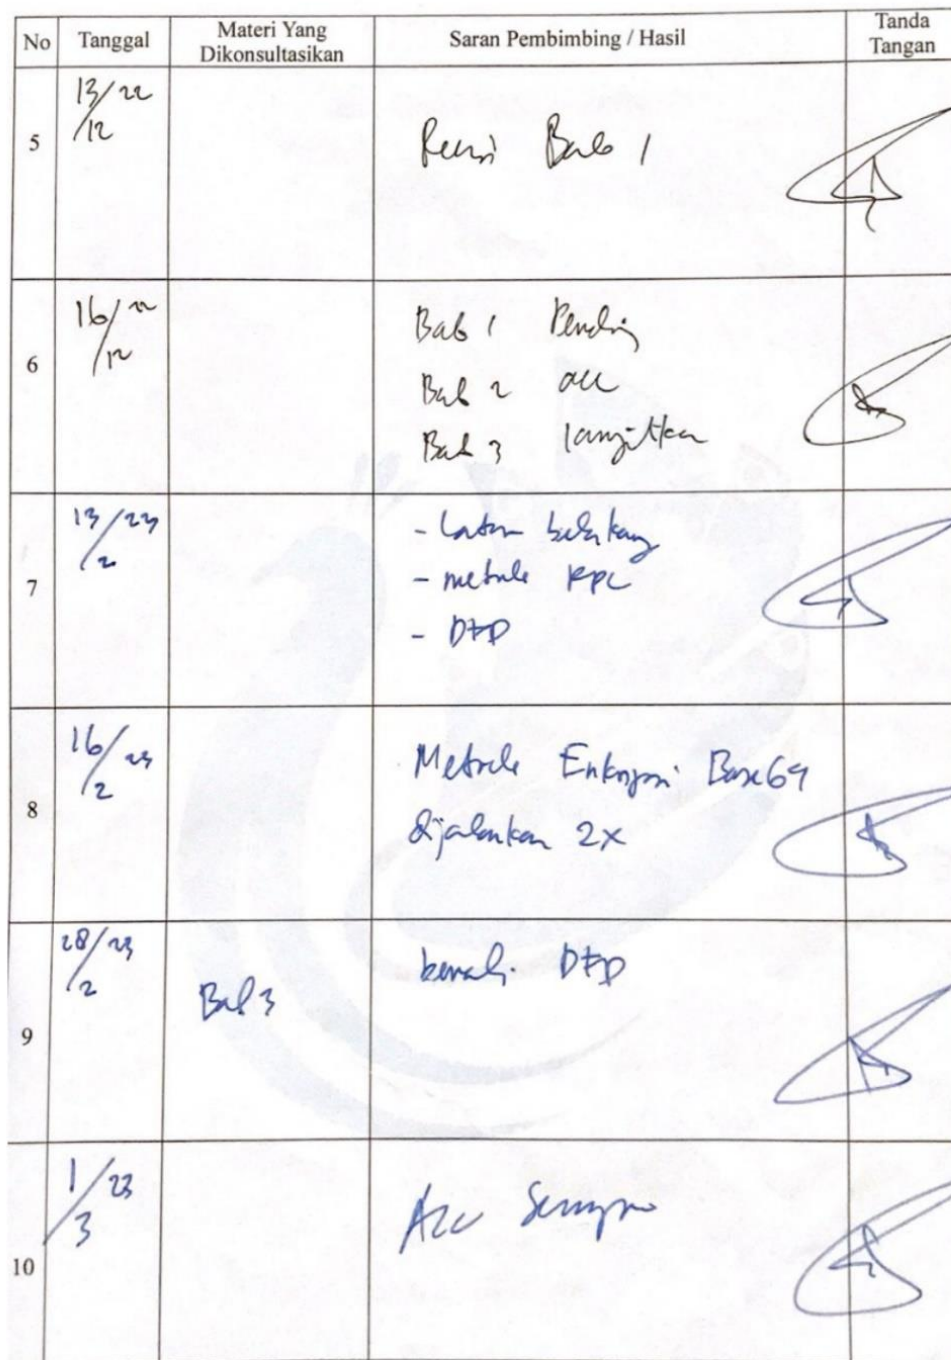 No Tanggal Materi Yang Dikonsultasikan Saran Pembimbing / Hasil Tanda Tangan
5 13/12 22 Revisi Bab 1
6 16/12 22 Bab 1 Pending
Bab 2 acc
Bab 3 lanjutkan
7 13/2 23 - Latar belakang
- metode RPL
- DFD
8 16/2 23 Metode Enkripsi Base64
dijalankan 2x
9 28/2 23 Bab 3 DFD
10 1/3 23 Acc Sempro